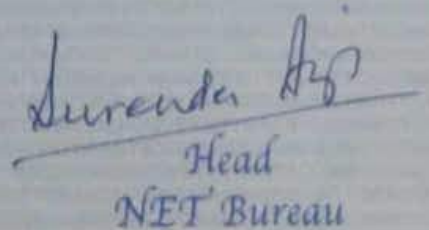 Surender
Head
NET Bureau